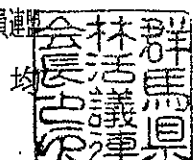 員連盟
均
群馬県
林活議連
会長之印